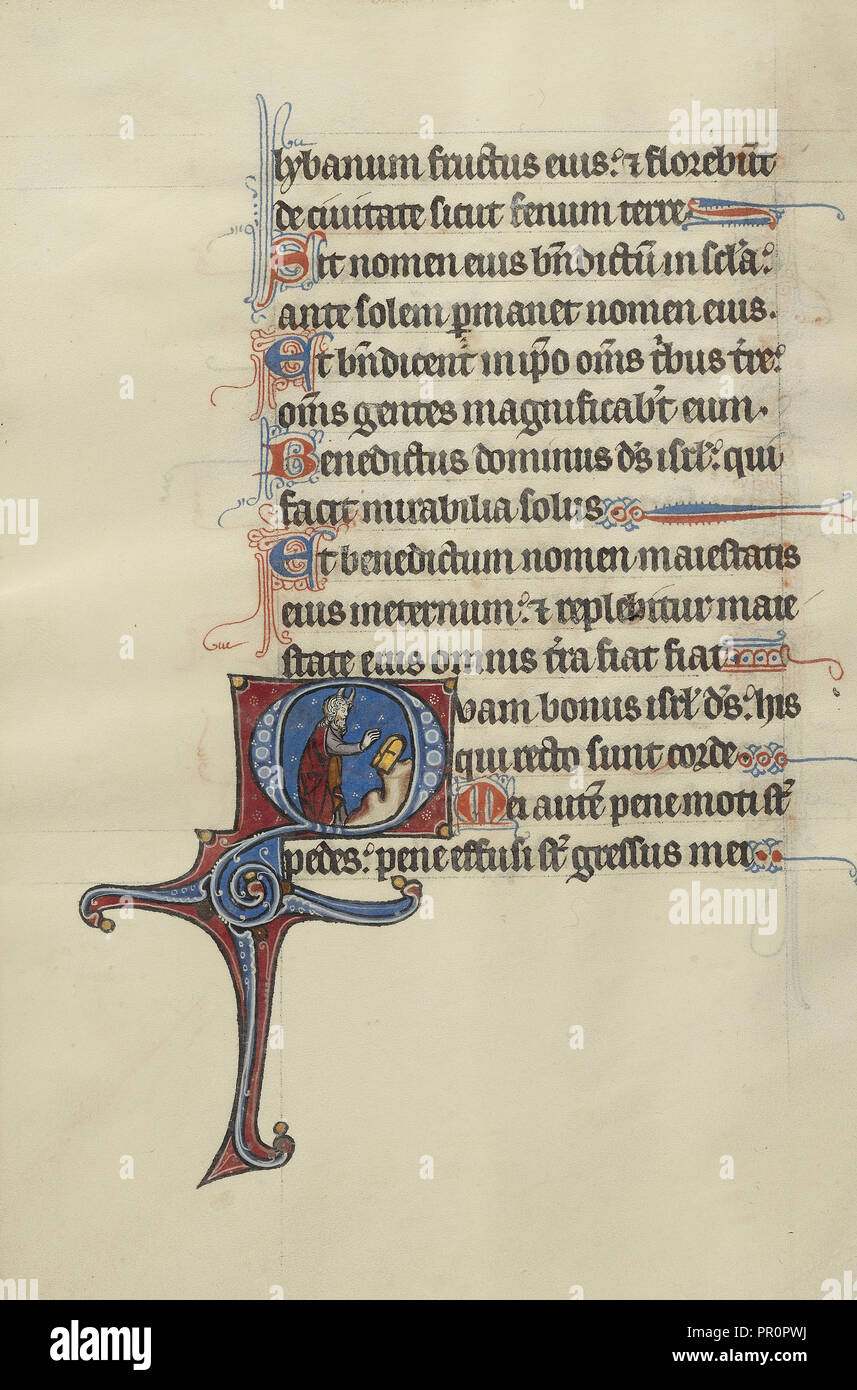 lybanum fructus eius: ⁊ florebūt
de ciuitate sicut fenum terre
Sit nomen eius bn̄dictū in scl̄a:
ante solem ꝑmanet nomen eius.
Et bn̄dicent in ip̄o om̄s t͛bus t͛re:
om̄s gentes magnificab͛t eum.
Benedictus dominus ds̄ isrl̄: qui
facit mirabilia solus
Et benedictum nomen maiestatis
eius in eternum: ⁊ replebitur maie
state eius omnis t͛ra fiat fiat
Quam bonus isrl̄ ds̄: his
qui recto sunt corde
Mei autē pene moti st̄
pedes: pene effusi st̄ gressus mei
alamy
Image ID: PR0PWJ
www.alamy.com